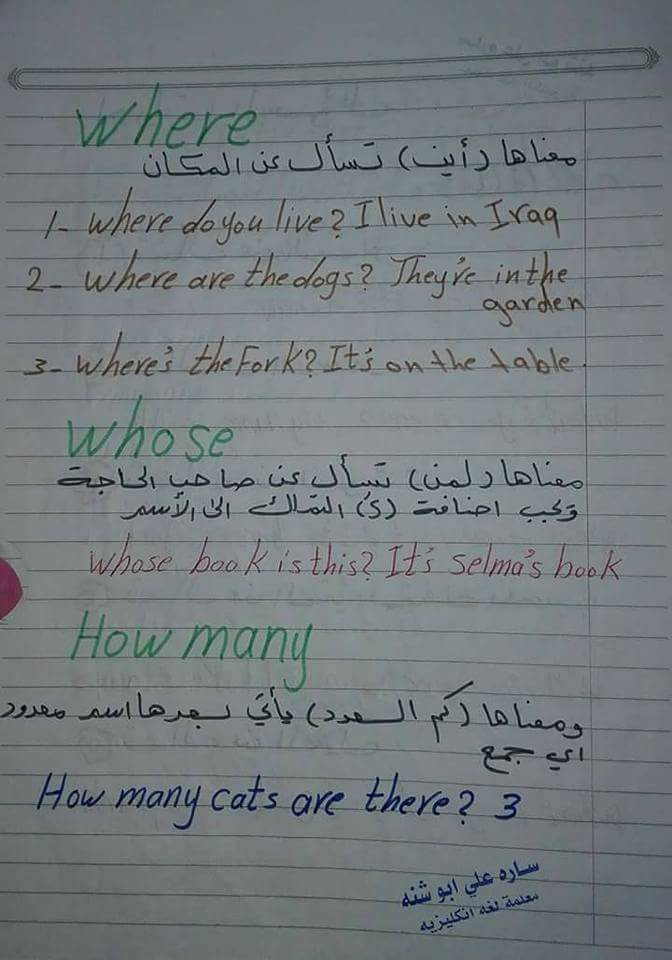 where
معناها (أين) تسأل عن المكان
1- where do you live? I live in Iraq
2- where are the dogs? They're in the
garden
3- where's the Fork? It's on the table.
whose
معناها (لمن) تسأل عن صاحب الحاجة
ويجب اضافة (s) التملك الى الأسم
whose book is this? It's Selma's book
How many
ومعناها (كم العدد) يأتي بعدها اسم معدود
اي جمع
How many cats are there? 3
ساره علي ابو شنه
معلمة لغه انكليزيه